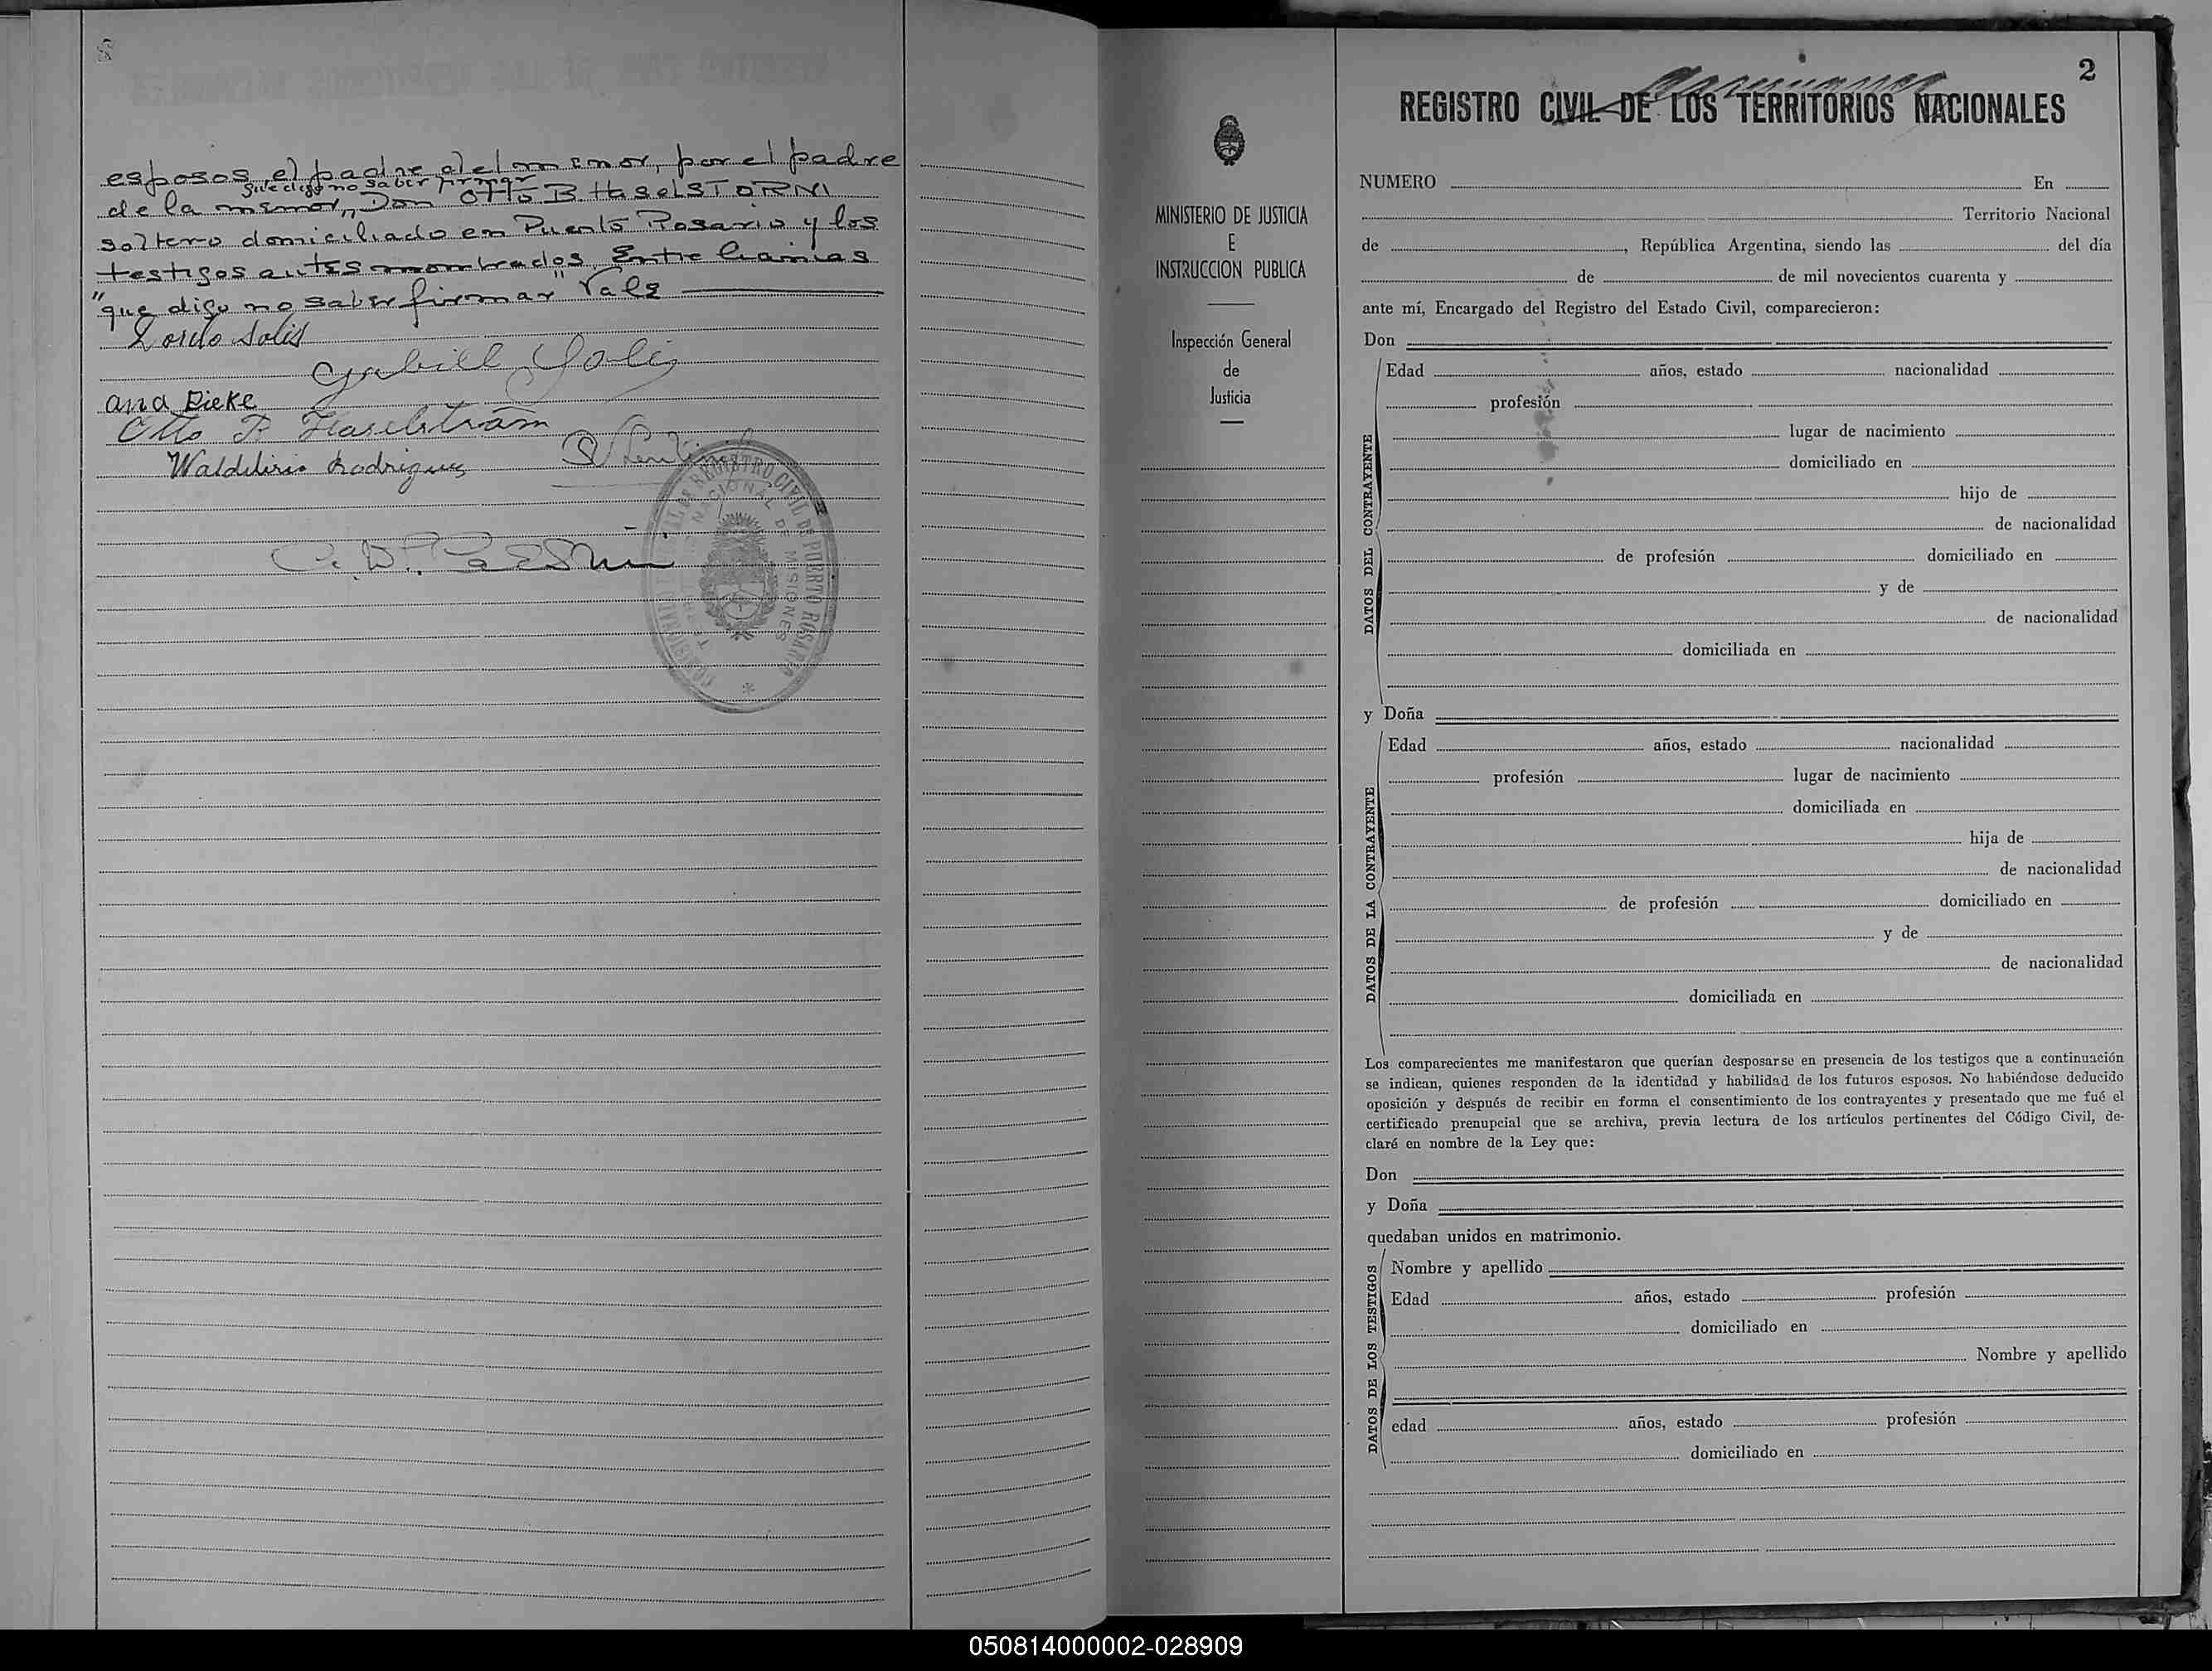 esposos, el padre del menor, por el padre
que digo no saber firmar
de la menor, Don Otto B. HaselSTORNI
soltero domiciliado en Puerto Rosario y los
testigos antes nombrados. Entre lineas
"que digo no saber firmar" Vale
Solis
Ana Rieke
Otto B. Haselström
Rodriguez
REGISTRO CIVIL DE PUERTO ROSARIO
NACIONAL DE MISIONES
MINISTERIO DE JUSTICIA
E
INSTRUCCION PUBLICA
Inspección General
de
Justicia
2
REGISTRO CIVIL DE LOS TERRITORIOS NACIONALES
NUMERO En
Territorio Nacional
de , República Argentina, siendo las del día
de de mil novecientos cuarenta y
ante mí, Encargado del Registro del Estado Civil, comparecieron:
Don
DATOS DEL CONTRAYENTE
Edad años, estado nacionalidad
profesión
lugar de nacimiento
domiciliado en
hijo de
de nacionalidad
de profesión domiciliado en
y de
de nacionalidad
domiciliada en
y Doña
DATOS DE LA CONTRAYENTE
Edad años, estado nacionalidad
profesión lugar de nacimiento
domiciliada en
hija de
de nacionalidad
de profesión domiciliado en
y de
de nacionalidad
domiciliada en
Los comparecientes me manifestaron que querían desposarse en presencia de los testigos que a continuación
se indican, quienes responden de la identidad y habilidad de los futuros esposos. No habiéndose deducido
oposición y después de recibir en forma el consentimiento de los contrayentes y presentado que me fué el
certificado prenupcial que se archiva, previa lectura de los artículos pertinentes del Código Civil, de-
claré en nombre de la Ley que:
Don
y Doña
quedaban unidos en matrimonio.
DATOS DE LOS TESTIGOS
Nombre y apellido
Edad años, estado profesión
domiciliado en
Nombre y apellido
edad años, estado profesión
domiciliado en
050814000002-028909